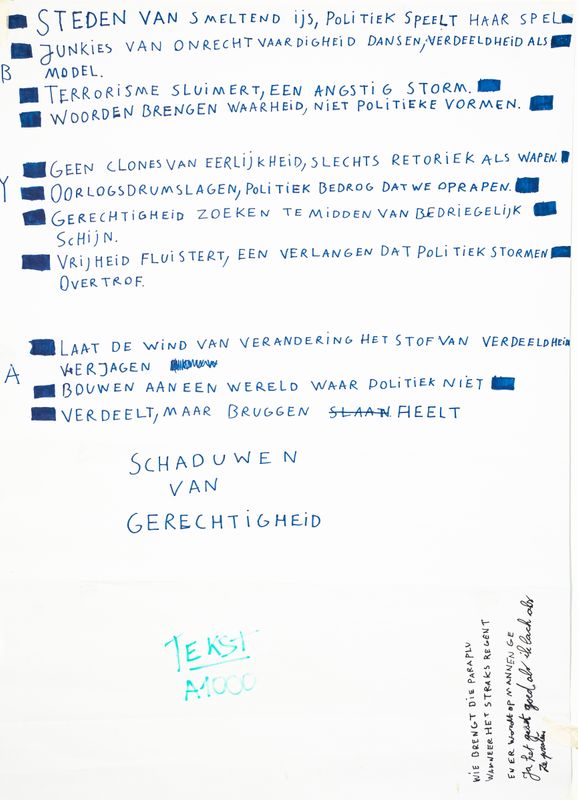 STEDEN VAN SMELTEND IJS, POLITIEK SPEELT HAAR SPEL
JUNKIES VAN ONRECHTVAARDIGHEID DANSEN, VERDEELDHEID ALS
B
MODEL.
TERRORISME SLUIMERT, EEN ANGSTIG STORM.
WOORDEN BRENGEN WAARHEID, NIET POLITIEKE VORMEN.
GEEN CLONES VAN EERLIJKHEID, SLECHTS RETORIEK ALS WAPEN.
Y
OORLOGSDRUMSLAGEN, POLITIEK BEDROG DAT WE OPRAPEN.
GERECHTIGHEID ZOEKEN TE MIDDEN VAN BEDRIEGELIJK
SCHIJN.
VRIJHEID FLUISTERT, EEN VERLANGEN DAT POLITIEK STORMEN
OVERTROF.
LAAT DE WIND VAN VERANDERING HET STOF VAN VERDEELDHEID
A
VERJAGEN
BOUWEN AAN EEN WERELD WAAR POLITIEK NIET
VERDEELT, MAAR BRUGGEN SLAAN HEELT
SCHADUWEN
VAN
GERECHTIGHEID
TEKST
A1000
WIE BRENGT DIE PARAPLU
WANNEER HET STRAKS REGENT
EN ER WORDT OP MANNEN GE
Ja het gaat goed als ik lach als